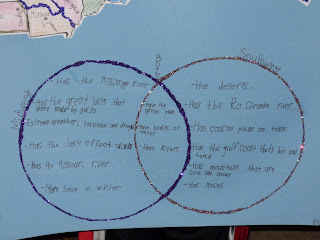 Both
Southwest
Midwest
-Has the Mississippi river
-Has the great lakes that
were made by glaciers
-Extreme weather: tornados and droughts
-Has the lake effect winds
-Has the Missouri river
-More Snow in winter
-Have the great plains
-Have bodies of water
-Have Rivers
-Has deserts
-Has the Rio Grande river
-Has coastal plains on texas
-Has the gulf coast thats hot and
humid
-Has mountain that are
cool and
-Has Mesas